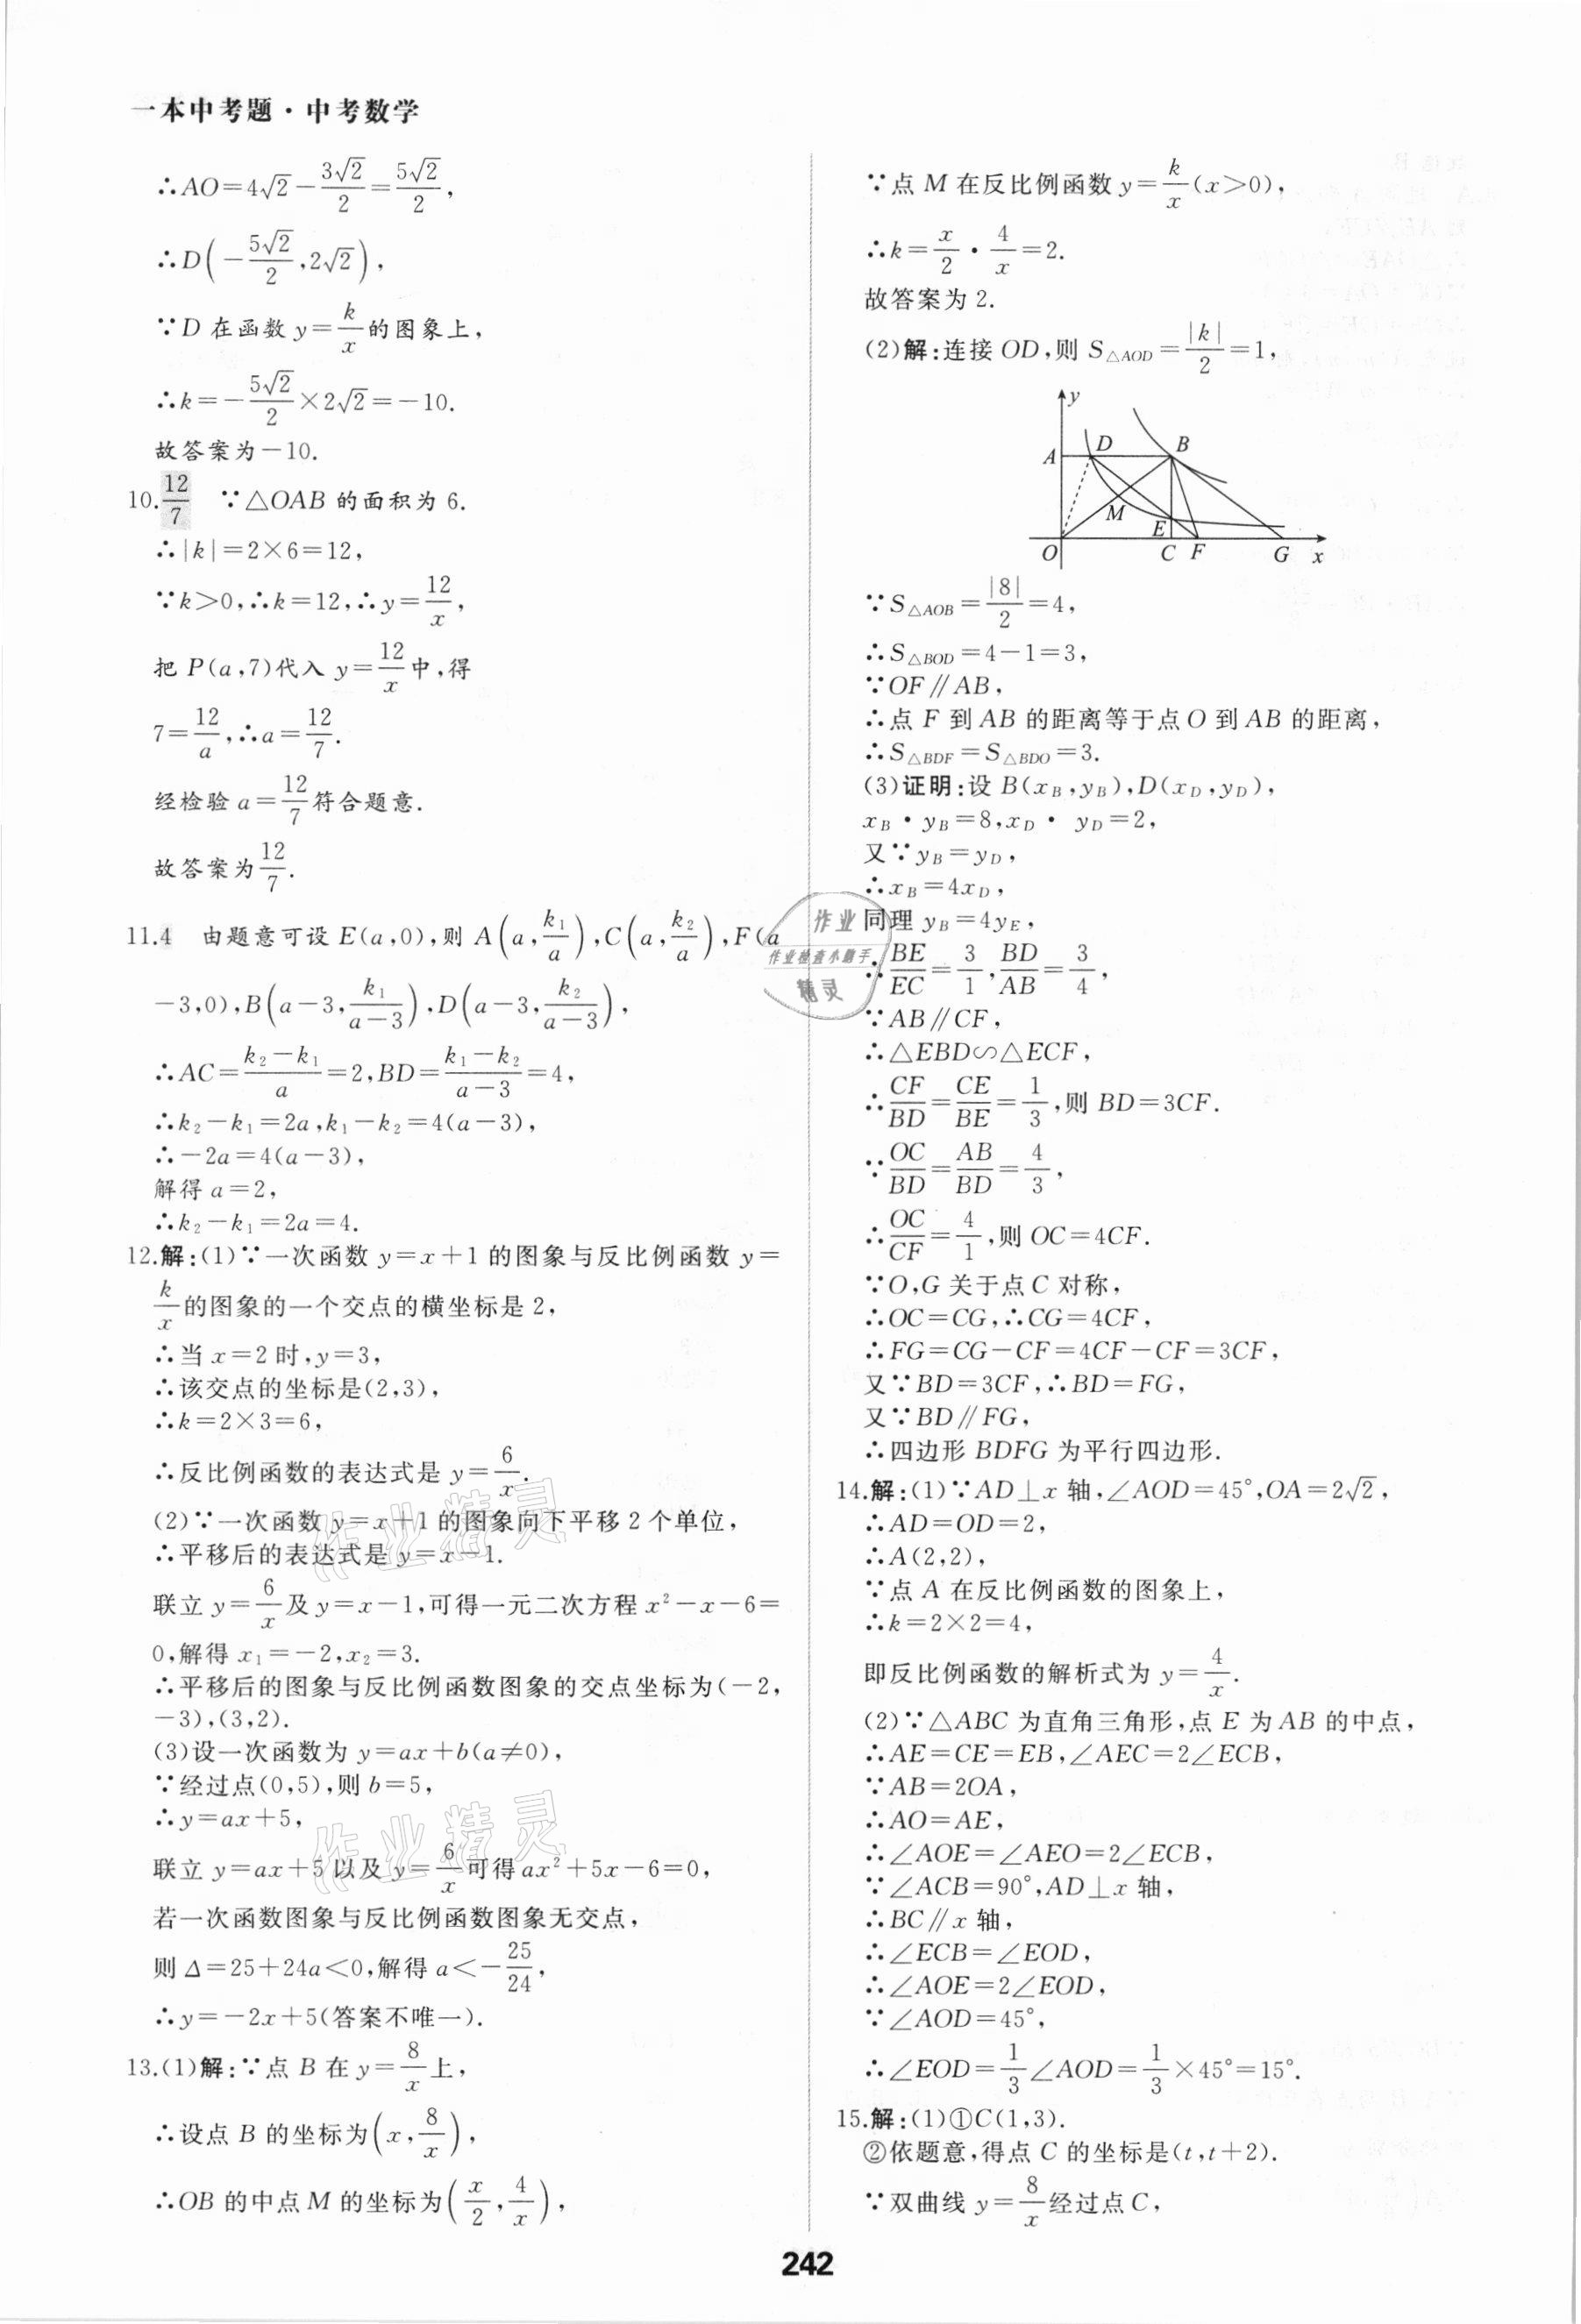 一本中考题·中考数学
∴AO=4√2-3√2/2=5√2/2,
∴D(-5√2/2,2√2),
∵D在函数y=k/x的图象上,
∴k=-5√2/2×2√2=-10.
故答案为-10.
10.12/7 ∵△OAB的面积为6.
∴|k|=2×6=12,
∵k>0,∴k=12,∴y=12/x,
把P(a,7)代入y=12/x中,得
7=12/a,∴a=12/7.
经检验a=12/7符合题意.
故答案为12/7.
11.4 由题意可设E(a,0),则A(a,k₁/a),C(a,k₂/a),F(a
-3,0),B(a-3,k₁/(a-3)),D(a-3,k₂/(a-3)),
∴AC=(k₂-k₁)/a=2,BD=(k₁-k₂)/(a-3)=4,
∴k₂-k₁=2a,k₁-k₂=4(a-3),
∴-2a=4(a-3),
解得a=2,
∴k₂-k₁=2a=4.
12.解:(1)∵一次函数y=x+1的图象与反比例函数y=
k/x的图象的一个交点的横坐标是2,
∴当x=2时,y=3,
∴该交点的坐标是(2,3),
∴k=2×3=6,
∴反比例函数的表达式是y=6/x.
(2)∵一次函数y=x+1的图象向下平移2个单位,
∴平移后的表达式是y=x-1.
联立y=6/x及y=x-1,可得一元二次方程x²-x-6=
0,解得x₁=-2,x₂=3.
∴平移后的图象与反比例函数图象的交点坐标为(-2,
-3),(3,2).
(3)设一次函数为y=ax+b(a≠0),
∵经过点(0,5),则b=5,
∴y=ax+5,
联立y=ax+5以及y=6/x可得ax²+5x-6=0,
若一次函数图象与反比例函数图象无交点,
则Δ=25+24a<0,解得a<-25/24,
∴y=-2x+5(答案不唯一).
13.(1)解:∵点B在y=8/x上,
∴设点B的坐标为(x,8/x),
∴OB的中点M的坐标为(x/2,4/x),
∵点M在反比例函数y=k/x(x>0),
∴k=x/2·4/x=2.
故答案为2.
(2)解:连接OD,则S△AOD=|k|/2=1,
y
A D B
M E
O C F G x
∵S△AOB=|8|/2=4,
∴S△BOD=4-1=3,
∵OF∥AB,
∴点F到AB的距离等于点O到AB的距离,
∴S△BDF=S△BDO=3.
(3)证明:设B(x_B,y_B),D(x_D,y_D),
x_B·y_B=8,x_D·y_D=2,
又∵y_B=y_D,
∴x_B=4x_D,
同理y_B=4y_E,
∴BE/EC=3/1,BD/AB=3/4,
∵AB∥CF,
∴△EBD∽△ECF,
∴CF/BD=CE/BE=1/3,则BD=3CF.
∵OC/BD=AB/BD=4/3,
∴OC/CF=4/1,则OC=4CF.
∵O,G关于点C对称,
∴OC=CG,∴CG=4CF,
∴FG=CG-CF=4CF-CF=3CF,
又∵BD=3CF,∴BD=FG,
又∵BD∥FG,
∴四边形BDFG为平行四边形.
14.解:(1)∵AD⊥x轴,∠AOD=45°,OA=2√2,
∴AD=OD=2,
∴A(2,2),
∵点A在反比例函数的图象上,
∴k=2×2=4,
即反比例函数的解析式为y=4/x.
(2)∵△ABC为直角三角形,点E为AB的中点,
∴AE=CE=EB,∠AEC=2∠ECB,
∵AB=2OA,
∴AO=AE,
∴∠AOE=∠AEO=2∠ECB,
∵∠ACB=90°,AD⊥x轴,
∴BC∥x轴,
∴∠ECB=∠EOD,
∴∠AOE=2∠EOD,
∵∠AOD=45°,
∴∠EOD=1/3∠AOD=1/3×45°=15°.
15.解:(1)①C(1,3).
②依题意,得点C的坐标是(t,t+2).
∵双曲线y=8/x经过点C,
242
作业
作业检查小助手
精灵
作业精灵
作业精灵